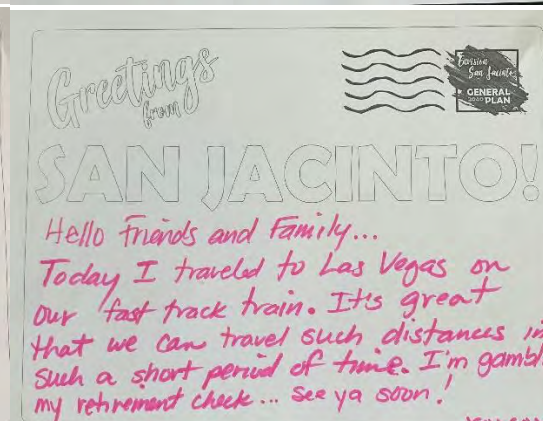 Greetings
from
Envision
San Jacinto
GENERAL
2040 PLAN
SAN JACINTO!
Hello Friends and Family...
Today I traveled to Las Vegas on
our fast track train. It's great
that we can travel such distances in
such a short period of time. I'm gambl
my retirement check... see ya soon!